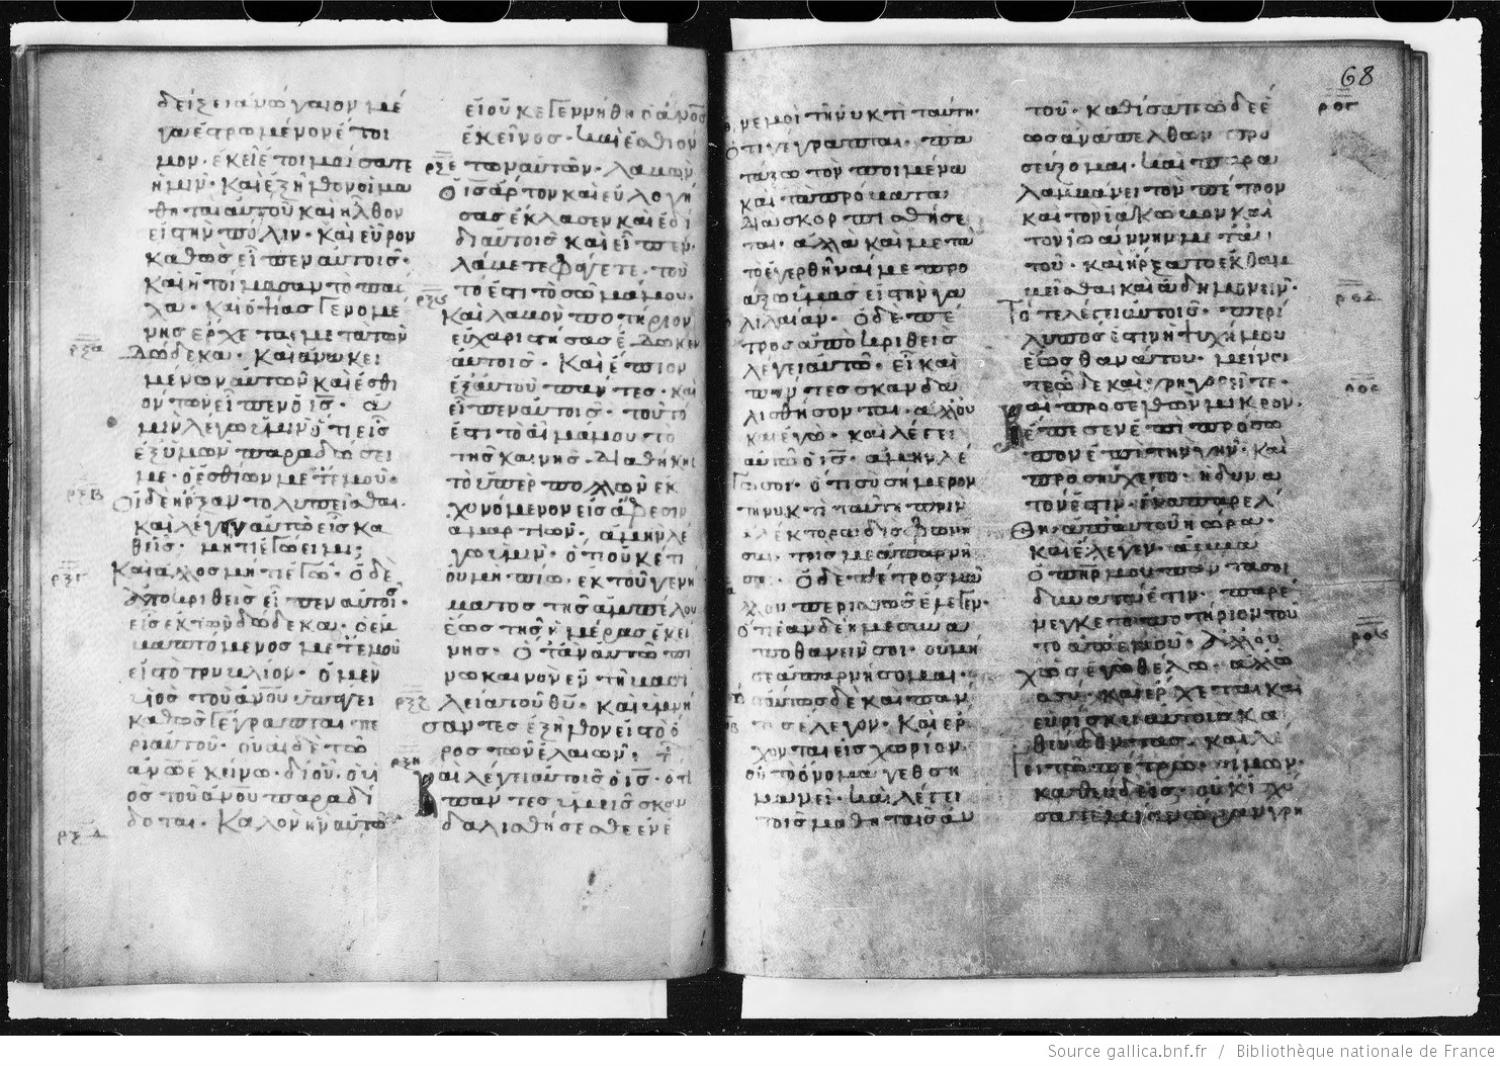 δείξει ἀνώγαιον μέ
γα ἐστρωμένον ἕτοι
μον· ἐκεῖ ἑτοιμάσατε
ἡμῖν· Καὶ ἐξῆλθον οἱ μα
θηταὶ αὐτοῦ καὶ ἦλθον
εἰς τὴν πόλιν· Καὶ εὗρον
καθὼς εἶπεν αὐτοῖς·
καὶ ἡτοίμασαν τὸ πάσ
χα· Καὶ ὀψίας γενομέ
νης ἔρχεται μετὰ τῶν
ρξα δώδεκα· Καὶ ἀνακει
μένων αὐτῶν καὶ ἐσθι
όντων εἶπεν ὁ ις· ἀ
μὴν λέγω ὑμῖν ὅτι εἷς
ἐξ ὑμῶν παραδώσει
ρξβ με· ὁ ἐσθίων μετ' ἐμοῦ·
Οἱ δὲ ἤρξαντο λυπεῖσθαι·
καὶ λέγειν αὐτῷ εἷς κα
θεῖς· μήτι ἐγώ εἰμι;
ρξγ Καὶ ἄλλος μήτι ἐγώ· Ὁ δὲ
ἀποκριθεὶς εἶπεν αὐτοῖς·
εἷς ἐκ τῶν δώδεκα· ὁ ἐμ
βαπτόμενος μετ' ἐμοῦ
εἰς τὸ τρυβλίον· ὁ μὲν
υἱὸς τοῦ ανου ὑπάγει
καθὼς γέγραπται πε
ρὶ αὐτοῦ· οὐαὶ δὲ τῷ
ανω ἐκείνω· δι' οὗ ὁ υἱ
ὸς τοῦ ανου παραδί
ρξδ δοται· Καλὸν ἦν αὐτῷ
εἰ οὐκ ἐγεννήθη ὁ ανος
ἐκεῖνος· Καὶ ἐσθιόν
ρξε των αὐτῶν· λαβὼν
Ο ις ἄρτον καὶ εὐλογή
σας ἔκλασεν καὶ ἐδί
δι αὐτοῖς καὶ εἶπεν·
λάβετε φάγετε· τοῦ
τό ἐστι τὸ σῶμά μου·
ρξϛ Καὶ λαβὼν ποτήριον
εὐχαριστήσας ἔδωκεν
αὐτοῖς· Καὶ ἔπιον
ἐξ αὐτοῦ πάντες· καὶ
εἶπεν αὐτοῖς· τοῦτό
ἐστι τὸ αἷμά μου τὸ
τῆς καινῆς διαθήκης
τὸ ὑπὲρ πολλῶν ἐκ
χυνόμενον εἰς ἄφεσιν
ἁμαρτιῶν· ἀμὴν λέ
γω ὑμῖν· ὅτι οὐκέτι
οὐ μὴ πίω· ἐκ τοῦ γενή
ματος τῆς ἀμπέλου
ἕως τῆς ἡμέρας ἐκεί
νης· ὅταν αὐτὸ πί
νω καινὸν ἐν τῇ βασι
ρξζ λείᾳ τοῦ θυ· Καὶ ὑμνή
σαντες ἐξῆλθον εἰς τὸ ὄ
ρος τῶν ἐλαιῶν·
ρξη Καὶ λέγει αὐτοῖς ὁ ις· ὅτι
πάντες ὑμεῖς σκαν
δαλισθήσεσθε ἐν ἐ
68
μοὶ τῇ νυκτὶ ταύτῃ·
ὅτι γέγραπται· πα
τάξω τὸν ποιμένα
καὶ τὰ πρόβατα
διασκορπισθήσε
ται· ἀλλὰ καὶ μετὰ
τὸ ἐγερθῆναί με προ
άξω ὑμᾶς εἰς τὴν γα
λιλαίαν· Ὁ δὲ πέ
τρος ἀποκριθεὶς
λέγει αὐτῷ· εἰ καὶ
πάντες σκανδα
λισθήσονται· ἀλλ' οὐ
κ ἐγώ· καὶ λέγει
αὐτῷ ὁ ις· ἀμὴν λέ
γω σοι· ὅτι σὺ σήμερον
τῇ νυκτὶ ταύτῃ πρὶν
ἀλέκτορα δὶς φωνῆ
σαι· τρίς με ἀπαρνή
σῃ· Ὁ δὲ πέτρος μᾶλ
λον περισσῶς ἔλεγεν·
Ὅτι ἐάν δέῃ με συνα
ποθανεῖν σοι· οὐ μή
σε ἀπαρνήσομαι·
ὡσαύτως δὲ καὶ πάν
τες ἔλεγον· Καὶ ἔρ
χονται εἰς χωρίον·
οὗ τὸ ὄνομα γεθση
μανεί· Καὶ λέγει
τοῖς μαθηταῖς αὐ
ρογ τοῦ· καθίσατε ὧδε ἕ
ως ἂν ἀπελθὼν προ
σεύξομαι· Καὶ παρα
λαμβάνει τὸν πέτρον
καὶ τὸν ἰάκωβον καὶ
τὸν ἰωάννην μετ' αὐ
τοῦ· καὶ ἤρξατο ἐκθαμ
βεῖσθαι καὶ ἀδημονεῖν·
ροδ Τότε λέγει αὐτοῖς· περί
λυπός ἐστιν ἡ ψυχή μου
ἕως θανάτου· μείνα
τε ὧδε καὶ γρηγορεῖτε·
ροε Καὶ προσελθὼν μικρὸν·
ἔπεσεν ἐπὶ πρόσω
πον ἐπὶ τὴν γῆν· καὶ
προσηύχετο· εἰ δυνα
τόν ἐστιν· ἵνα παρέλ
θῃ ἀπ' αὐτοῦ ἡ ὥρα·
καὶ ἔλεγεν· ἀββᾶ
ὁ πηρ μου πάντα σοι
δυνατά ἐστιν· παρέ
νεγκε τὸ ποτήριον τοῦ
ροϛ το ἀπ' ἐμοῦ· Ἀλλ' οὐ
χ ὡς ἐγὼ θέλω· ἀλλ' ὡ
ς σύ· καὶ ἔρχεται καὶ
εὑρίσκει αὐτοὺς κα
θεύδοντας· καὶ λέ
γει τῷ πέτρῳ· σίμων·
καθεύδεις· οὐκ ἰσχύ
σατε μίαν ὥραν γρη
Source gallica.bnf.fr / Bibliothèque nationale de France